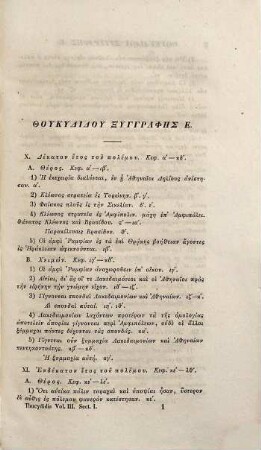 ΘΟΥΚΥΔΙΔΟΥ ΞΥΓΓΡΑΦΗΣ Ε.
X. Δέκατον ἔτος τοῦ πολέμου. Κεφ. α΄—κδ΄.
Α. Θέρος. Κεφ. α΄—ιβ΄.
1) Ἡ ἐκεχειρία διαλύεται, ἐν ᾗ Ἀθηναῖοι Δηλίους ἀνέστησαν. α΄.
2) Κλέωνος στρατεία ἐς Τορώνην. β΄. γ΄.
3) Φαίακος πλοῦς ἐς τὴν Σικελίαν. δ΄. ε΄.
4) Κλέωνος στρατεία ἐς Ἀμφίπολιν. μάχη ἐπ᾽ Ἀμφιπόλει.
θάνατος Κλέωνος καὶ Βρασίδου. ϛ΄—ια΄.
Παρακέλευσις Βρασίδου. θ΄.
5) Οἱ ἀμφὶ Ῥαμφίαν ἐς τὰ ἐπὶ Θρᾴκης βοήθειαν ἄγοντες
ἐς Ἡράκλειαν ἀφικνοῦνται. ιβ΄.
Β. Χειμών. Κεφ. ιγ΄—κδ΄.
1) Οἱ ἀμφὶ Ῥαμφίαν ἀναχωροῦσιν ἐπ᾽ οἴκου. ιγ΄.
2) Αἰτίαι, ἀφ᾽ ὧν οἱ Λακεδαιμόνιοι καὶ οἱ Ἀθηναῖοι πρὸς
τὴν εἰρήνην τὴν γνώμην εἶχον. ιδ΄—ιζ΄.
3) Γίγνονται σπονδαὶ Λακεδαιμονίων καὶ Ἀθηναίων. ιζ΄—κ΄.
Αἱ σπονδαὶ αὐταί. ιη΄. ιθ΄.
4) Λακεδαιμονίων λαχόντων προτέρων τὰ τῆς ὁμολογίας
ἀποτελεῖν ἀπορίαι γίγνονται περὶ Ἀμφιπόλεως, οὐδὲ οἱ ἄλλοι
ξύμμαχοι πάντες δέχονται τὰς σπονδάς. κα΄.
5) Γίγνεται οὖν ξυμμαχία Λακεδαιμονίων καὶ Ἀθηναίων
πεντηκοντούτης. κβ΄—κδ΄.
Ἡ ξυμμαχία αὐτή. κγ΄.
XI. Ἑνδέκατον ἔτος τοῦ πολέμου. Κεφ. κε΄—λθ΄.
Α. Θέρος. Κεφ. κε΄—λε΄.
1) Ὅτι αὐτίκα πάλιν ταραχαὶ καὶ ὑποψίαι ἦσαν, ὕστερον
δὲ αὖθις ἐς πόλεμον φανερὸν κατέστησαν. κε΄.
Thucydides Vol. III. Sect. I. 1